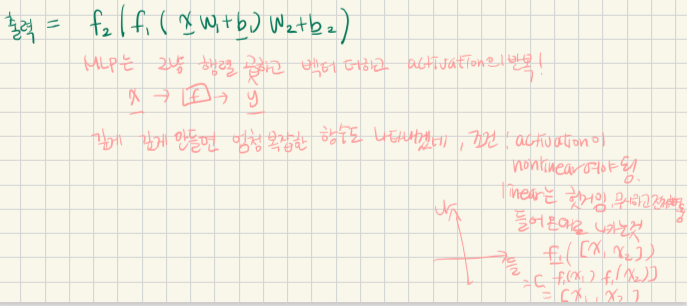 출력 = f₂(f₁(x w₁+b₁) w₂+b₂)
MLP는 그냥 행렬 곱하고 벡터 더하고 activation의 반복!
x → f → y
깊게 깊게 만들면 엄청 복잡한 함수도 나타내겠네, 조건 : activation이
nonlinear여야 됨.
linear는 헛거임 무시하고
들어온대로 나가는것
f₁([x₁ x₂])
=[f₁(x₁) f₁(x₂)]
=[x₁, x₂]